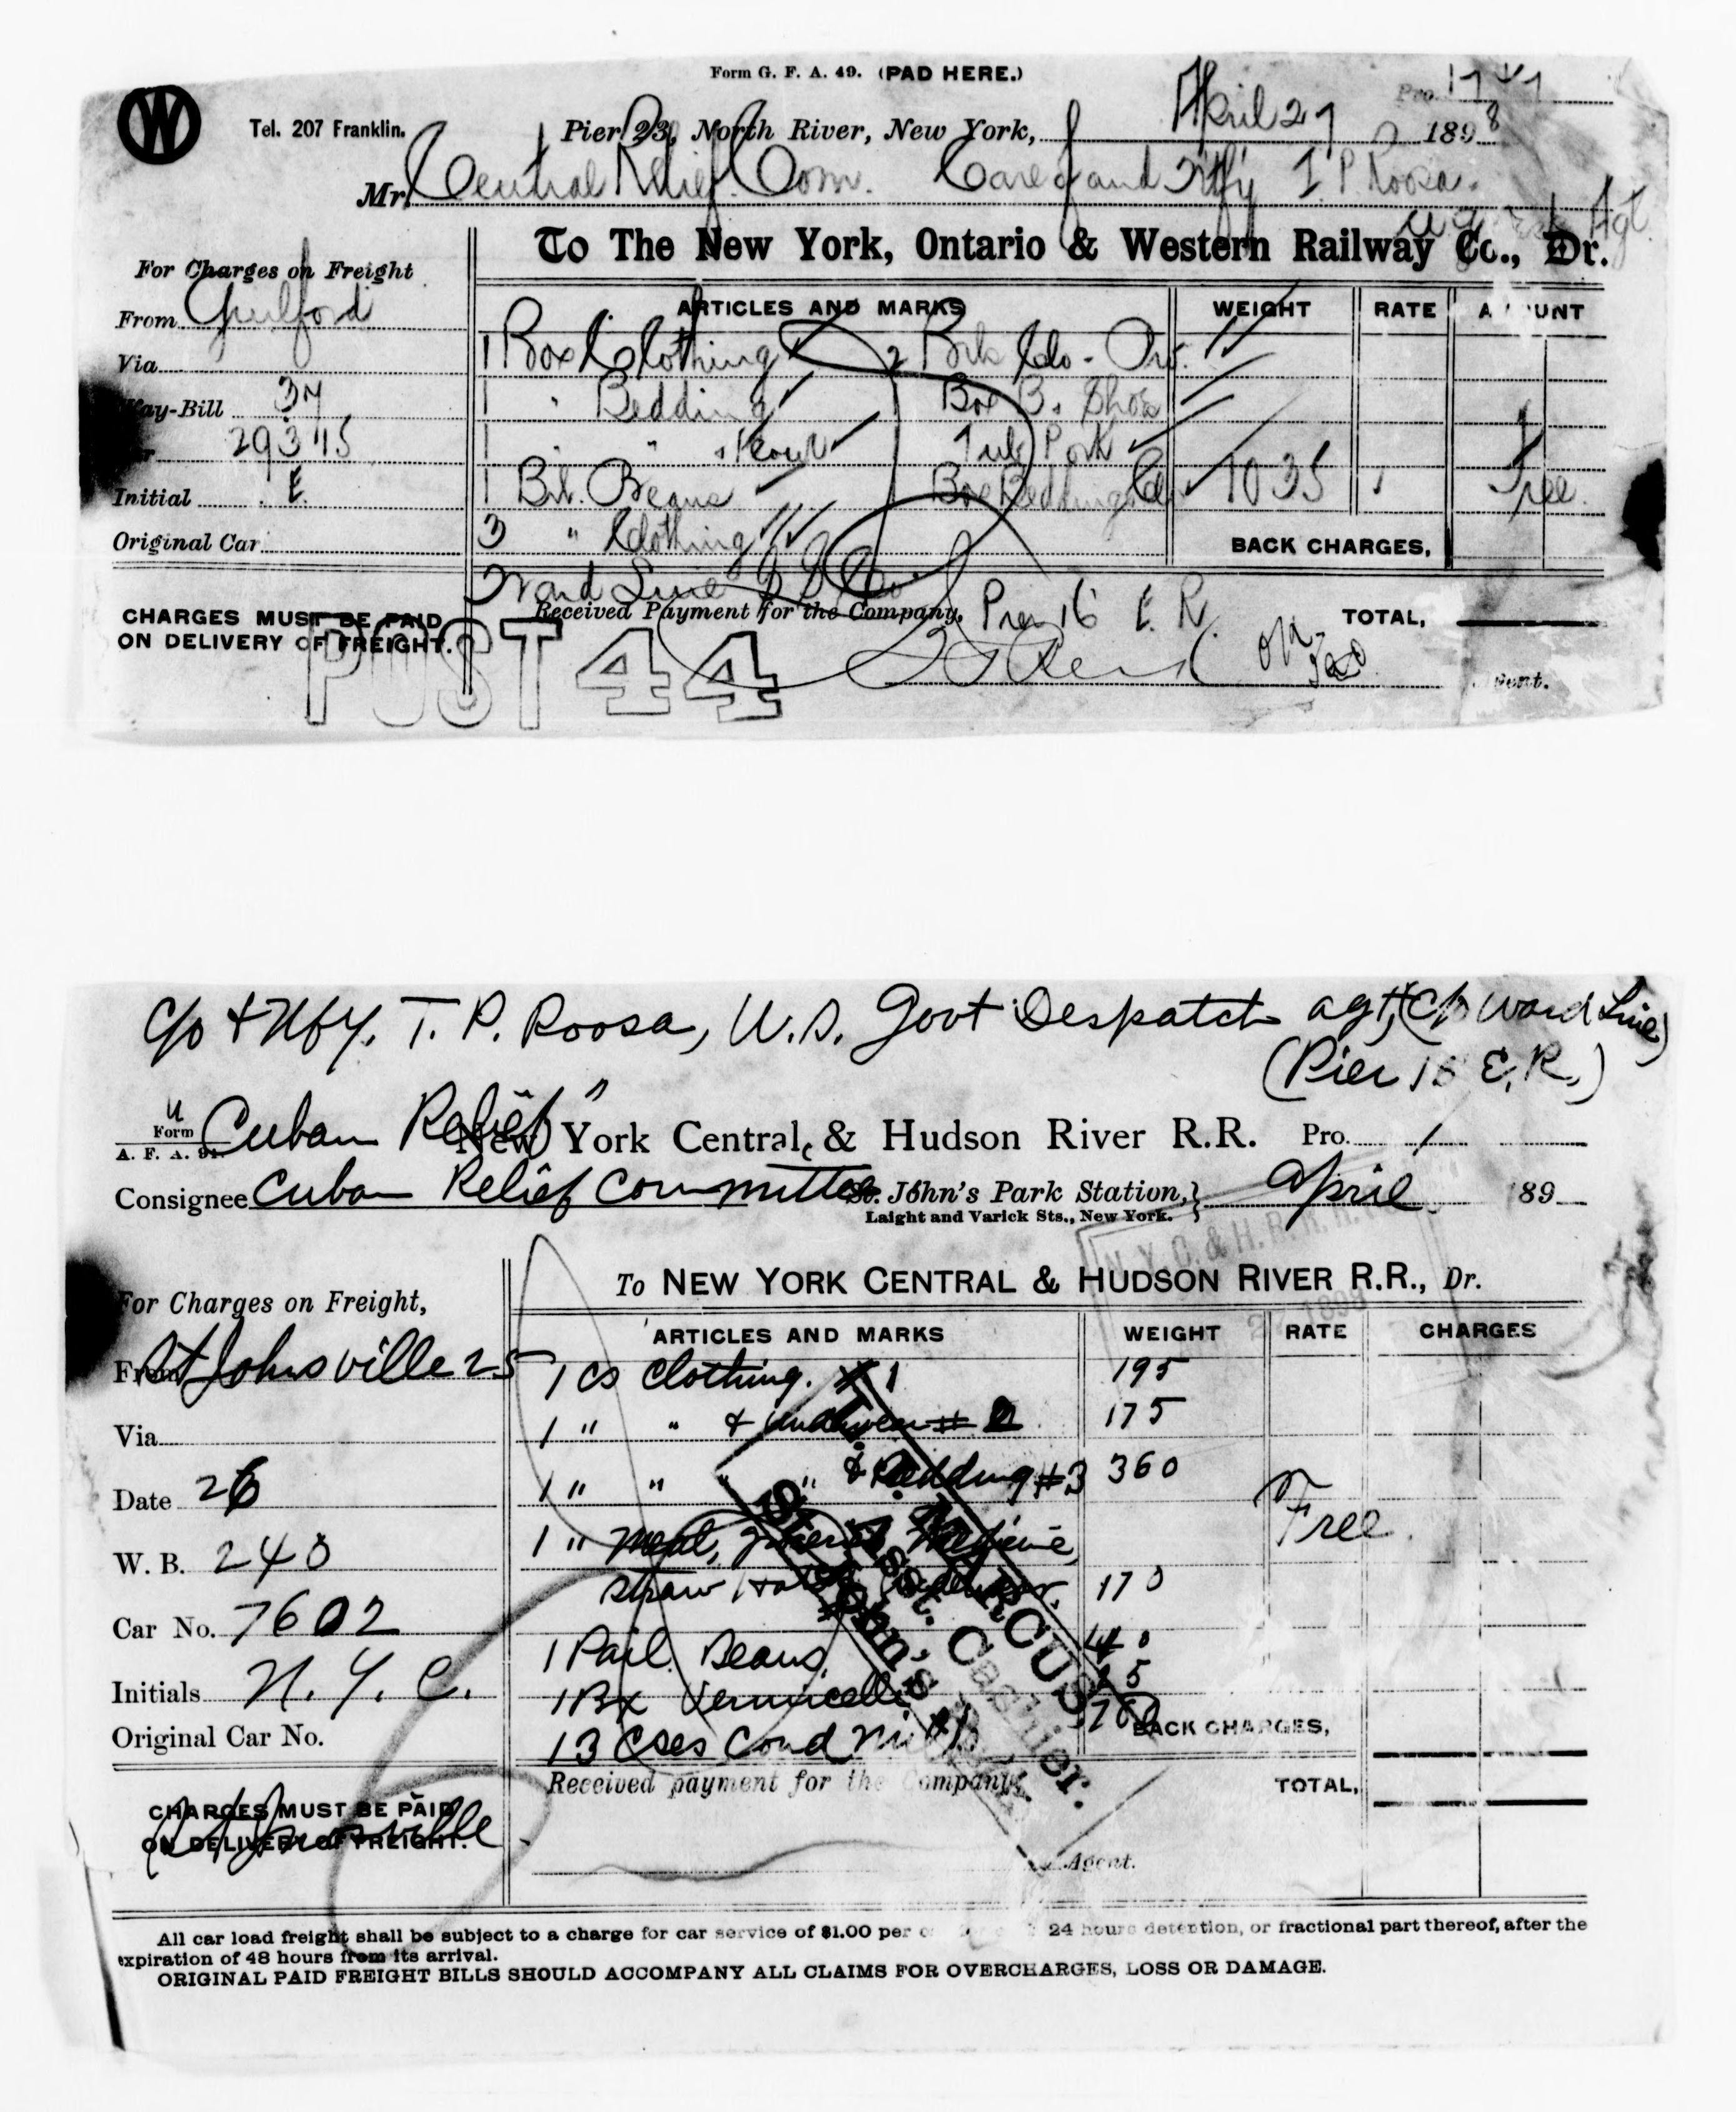 Form G. F. A. 49. (PAD HERE.)
W
Tel. 207 Franklin.
Pier 23, North River, New York, April 27 1898
Pro. 1747
Mr. Central Relief Com. Care of and Ntfy T. P. Roosa.
Agt
To The New York, Ontario & Western Railway Co., Dr.
For Charges on Freight
From Guilford
Via
Way-Bill 37
29375
Initial E.
Original Car
ARTICLES AND MARKS WEIGHT RATE AMOUNT
1 Box Clothing 2 Brls Clo -
1 " Bedding Box B. Shoe
1 " " Flour 1 Tub Pork
1 Brl. Beans Box Bedding 1035 Free.
3 " Clothing
BACK CHARGES,
Ward Line S S Co
Received Payment for the Company, Pier 16 E. R.
TOTAL,
CHARGES MUST BE PAID
ON DELIVERY OF FREIGHT.
POST 44
OK
Agent.
c/o & Ntfy. T. P. Roosa, U.S. Govt Despatch agt, (c/o Ward Line)
(Pier 16 E. R.)
"Cuban Relief"
Form
A. F. A.
New York Central & Hudson River R.R. Pro. 1
Consignee Cuban Relief Committee
St. John's Park Station, April 189
Laight and Varick Sts., New York.
N. Y. C. & H. R. R. R.
1898
To NEW YORK CENTRAL & HUDSON RIVER R.R., Dr.
For Charges on Freight,
From St Johnsville 25
Via
Date 26
W. B. 240
Car No. 7602
Initials N. Y. C.
Original Car No.
ARTICLES AND MARKS WEIGHT RATE CHARGES
1 cs clothing. #1 195
1 " " & underwear #2 175
1 " " " & Bedding #3 360
1 " Meal, Medicine,
Straw Hats, 170
Free.
1 Pail Beans, 40
1 Bx Vermicelli 25
13 Cses Cond Milk
BACK CHARGES,
Received payment for the Company,
TOTAL,
CHARGES MUST BE PAID
ON DELIVERY OF FREIGHT.
St Johnsville
Asst. Cashier.
St. John's
Agent.
All car load freight shall be subject to a charge for car service of $1.00 per 24 hours detention, or fractional part thereof, after the
expiration of 48 hours from its arrival.
ORIGINAL PAID FREIGHT BILLS SHOULD ACCOMPANY ALL CLAIMS FOR OVERCHARGES, LOSS OR DAMAGE.